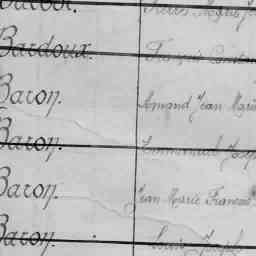 Bardoux. François
Baron. Armand Jean Marie
Baron. Emmanuel Joseph
Baron. Jean Marie François
Baron. Louis Joseph